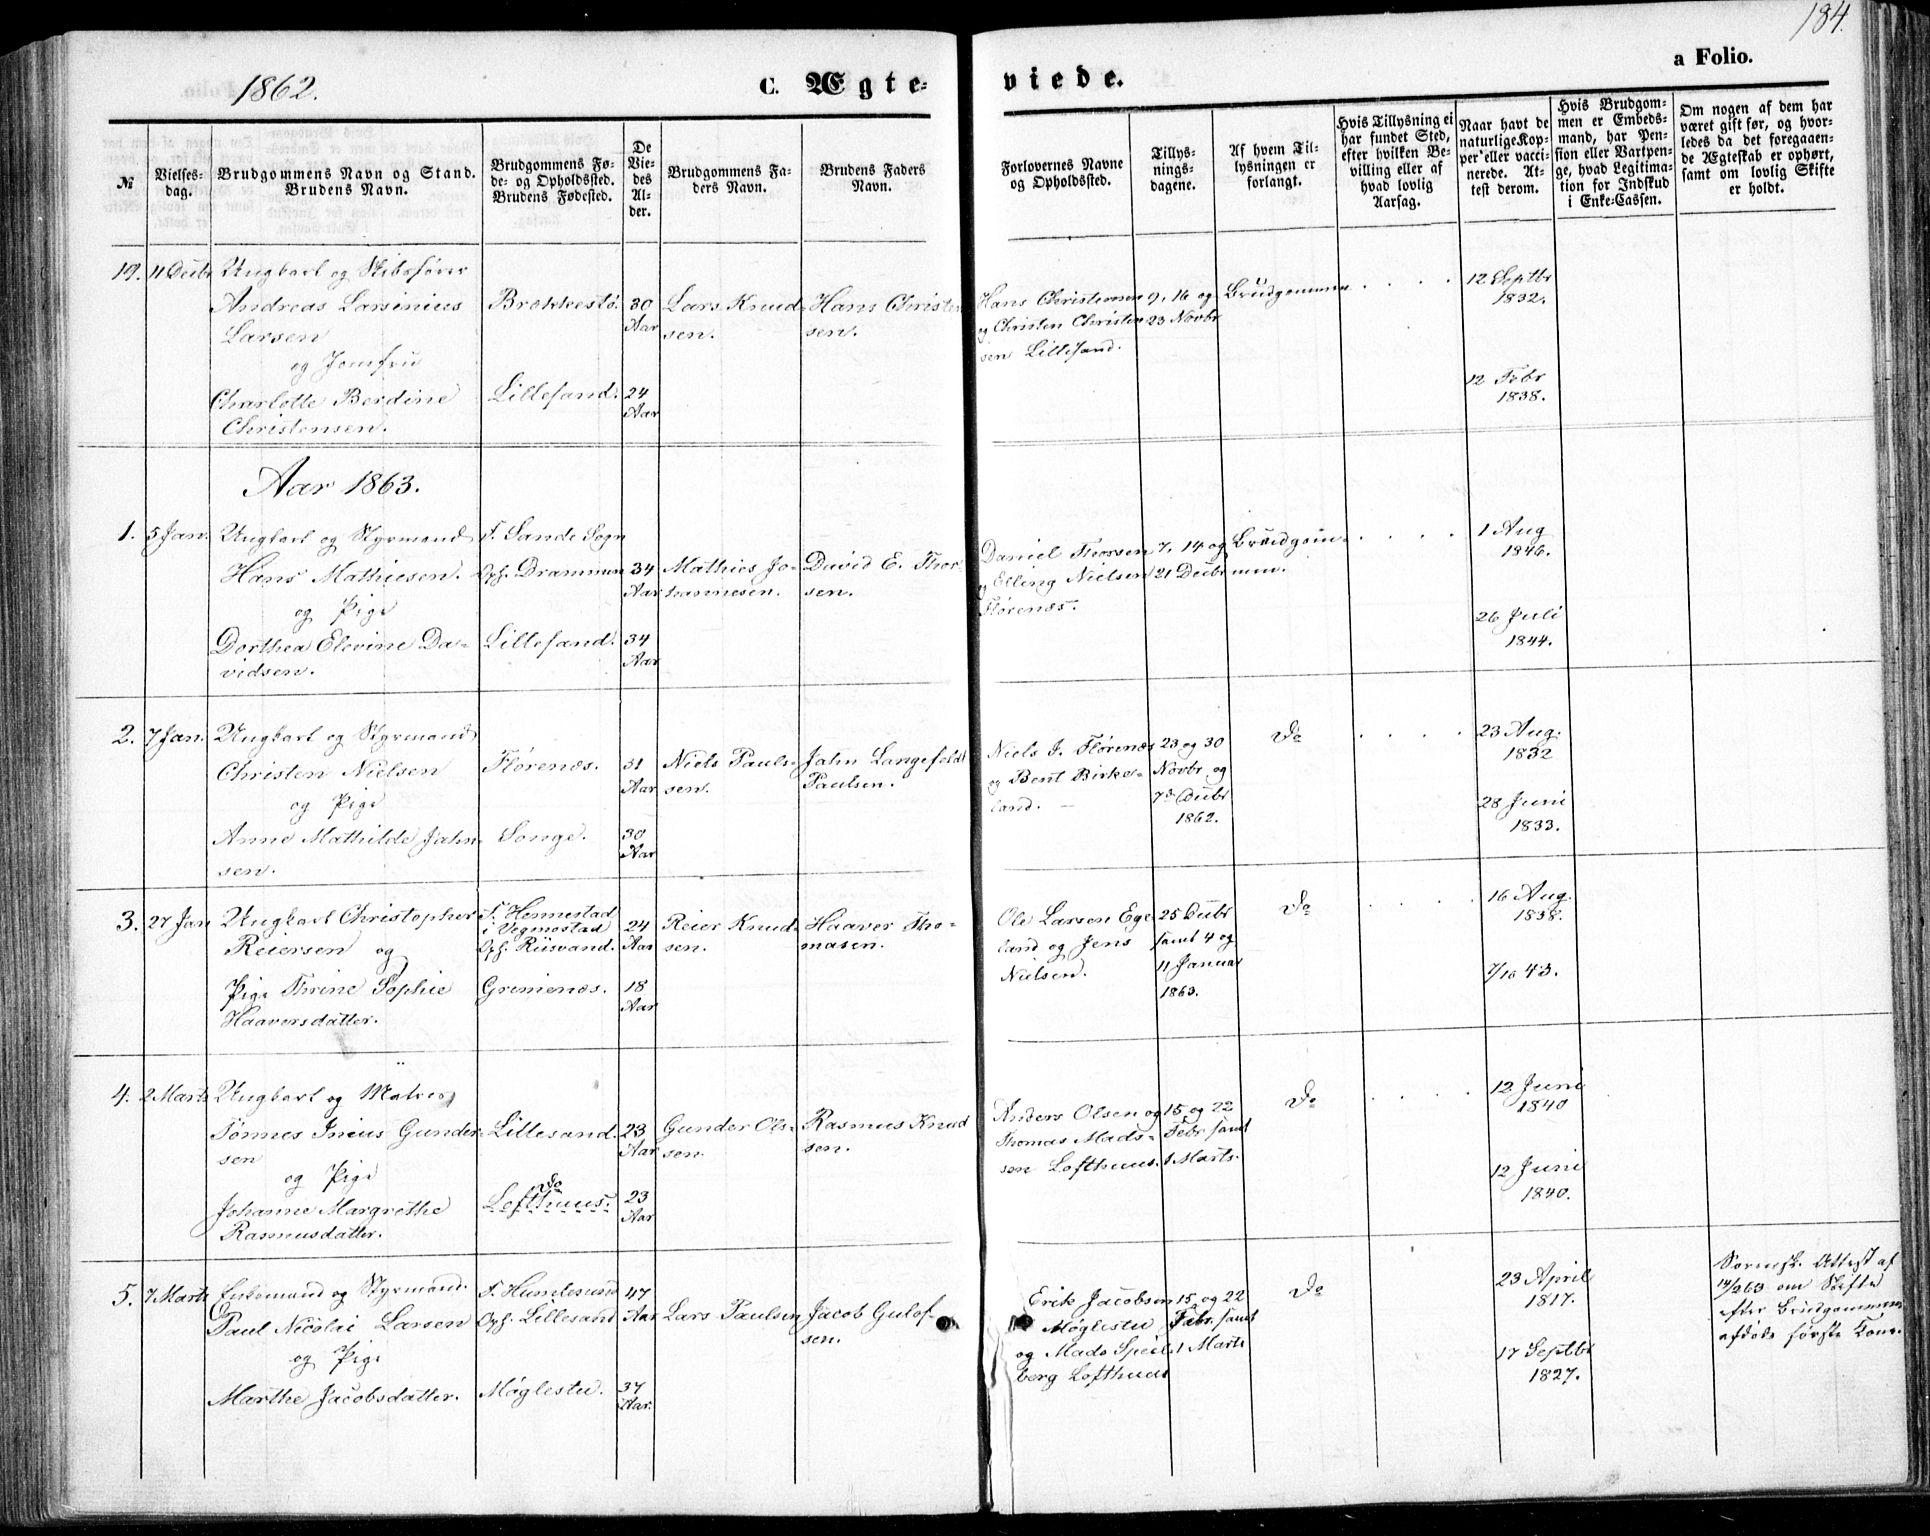 184.
1862.
C. Ægte-
viede.
a Folio.
№
Vielses-
dag.
Brudgommens Navn og Stand.
Brudens Navn.
Brudgommens Fø-
de- og Opholdssted.
Brudens Fødested.
De
Vie-
des
Al-
der.
Brudgommens Fa-
ders Navn.
Brudens Faders
Navn.
Forlovernes Navne
og Opholdssted.
Tillys-
nings-
dagene.
Af hvem Til-
lysningen er
forlangt.
Hvis Tillysning ei
har fundet Sted,
efter hvilken Be-
villing eller af
hvad lovlig
Aarsag.
Naar havt de
naturlige Kop-
per eller vacci-
nerede. At-
test derom.
Hvis Brudgom-
men er Embeds-
mand, har Pen-
sion eller Vartpen-
ge, hvad Legitima-
tion for Indskud
i Enke-Cassen.
Om nogen af dem har
været gift før, og hvor-
ledes da det foregaaen-
de Ægteskab er ophørt,
samt om lovlig Skifte
er holdt.
19. 11 Decbr Ungkarl og Skibsfører
Andreas Larsinius
Larsen
og Jomfru
Charlotte Berdine
Christensen.
Brækkestø.
Lillesand.
30
Aar
24
Aar
Lars Knud-
sen.
Hans Christen
sen.
Hans Christensen
og Christen Christen
sen Lillesand.
9, 16 og
23 Novbr
Brudgommen
. . . .
12 Septbr
1832.
12 Febr
1838.
Aar 1863.
1. 5 Jan. Ungkarl og Styrmand
Hans Mathiesen.
og Pige
Dorthea Elevine Da-
vidsen.
F. Sande Sogn
Oph. Drammen
Lillesand.
34
Aar
34
Aar
Mathies Jo-
hannesen.
David E. Thor-
sen.
Daniel Thorsen
og Elling Nielsen
Flørenæs.
7, 14 og
21 Decbr
Brudgom-
men.
. . . .
1 Aug
1846.
26 Juli
1844.
2. 7 Jan. Ungkarl og Styrmand
Christen Nielsen
og Pige
Anne Mathilde Jahn-
sen.
Flørenæs.
Songe.
31
Aar
30
Aar
Niels Pauls-
sen.
Jahn Langefeldt
Paulsen.
Niels J. Flørenæs
og Bent Birke-
land.
23 og 30
Novbr og
7de Decbr
1862.
Do
. . . .
23 Aug.
1832
28 Juni
1833.
3. 27 Jan Ungkarl Christopher
Reiersen og
Pige Thrine Sophie
Haaversdatter.
F. Hennestad
i Vegmostad
Oph. Riisvand.
Grimenæs.
24
Aar
18
Aar
Reier Knud-
sen.
Haaver Tho-
masen.
Ole Larsen Ege-
land og Jens
Nielsen.
25 Decbr
samt 4 og
11 Januar
1863.
Do
. . . .
16 Aug.
1838.
7/10 43.
4. 2 Marts Ungkarl og Matros
Tønnes Inius Gunder-
sen
og Pige
Johanne Margrethe
Rasmusdatter.
Lillesand.
Do
Lofthuus.
23
Aar
23
Aar
Gunder Ols-
sen.
Rasmus Knud
sen.
Anders Olsen og
Thomas Mads-
sen Lofthuus.
15 og 22
Febr samt
1 Marts.
Do
. . . .
12 Juni
1840
12 Juni
1840.
5. 7 Marts Enkemand og Styrmand
Paul Nicolai Larsen
og Pige
Marthe Jacobsdatter.
F. Humlesund
Oph. Lillesand
Møglestu.
47
Aar
37
Aar.
Lars Paulsen
Jacob Gulof-
sen.
Erik Jacobsen
Møglestu
og Mads Speil-
berg Lofthuus
15 og 22
Febr. samt
1 Marts
Do
23 April
1817.
17 Septbr
1827.
Sorensk. Attest af
14/2 63 om Skifte
efter Brudgommens
afdøde første Kone.